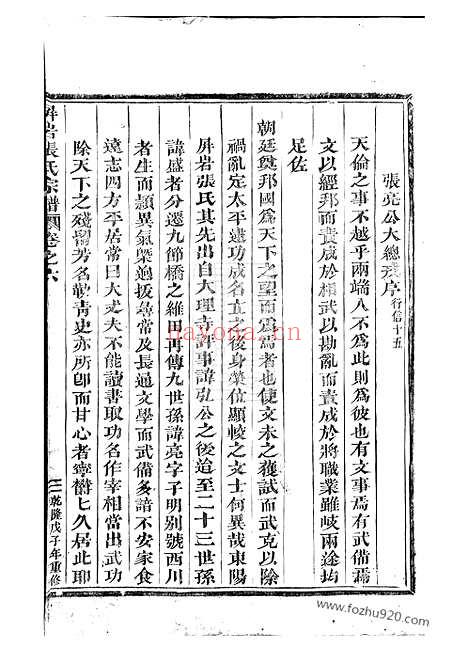 張亮公大總㦳序行信十五
天倫之事不越乎兩端人不爲此則爲彼也有文事焉有武備焉
文以經邦而責成於相武以勘亂而責成於將職業雖岐兩途均
足佐
朝廷奠邦國爲天下之望而爲爲者也使文未之獲試而武克以除
禍亂定太平建功成名立之後身榮位顯較之文士何異哉東陽
屏岩張氏其先出自大理寺評事諱弘公之後迨至二十三世孫
諱盛者分遷九節橋之維田再傳九世孫諱亮字子明别號西川
者生而頴異氣槩逈拔尋常及長通文學而武備多諳不安家食
遠志四方平居常曰大丈夫不能讀書取功名作宰相當出武功
除天下之殘留芳名於青史亦所卽而甘心者寧欝七久居此耶
屏岩張氏宗譜 卷之六
乾隆戊子年重修
hayona.com
www.fozhu920.com